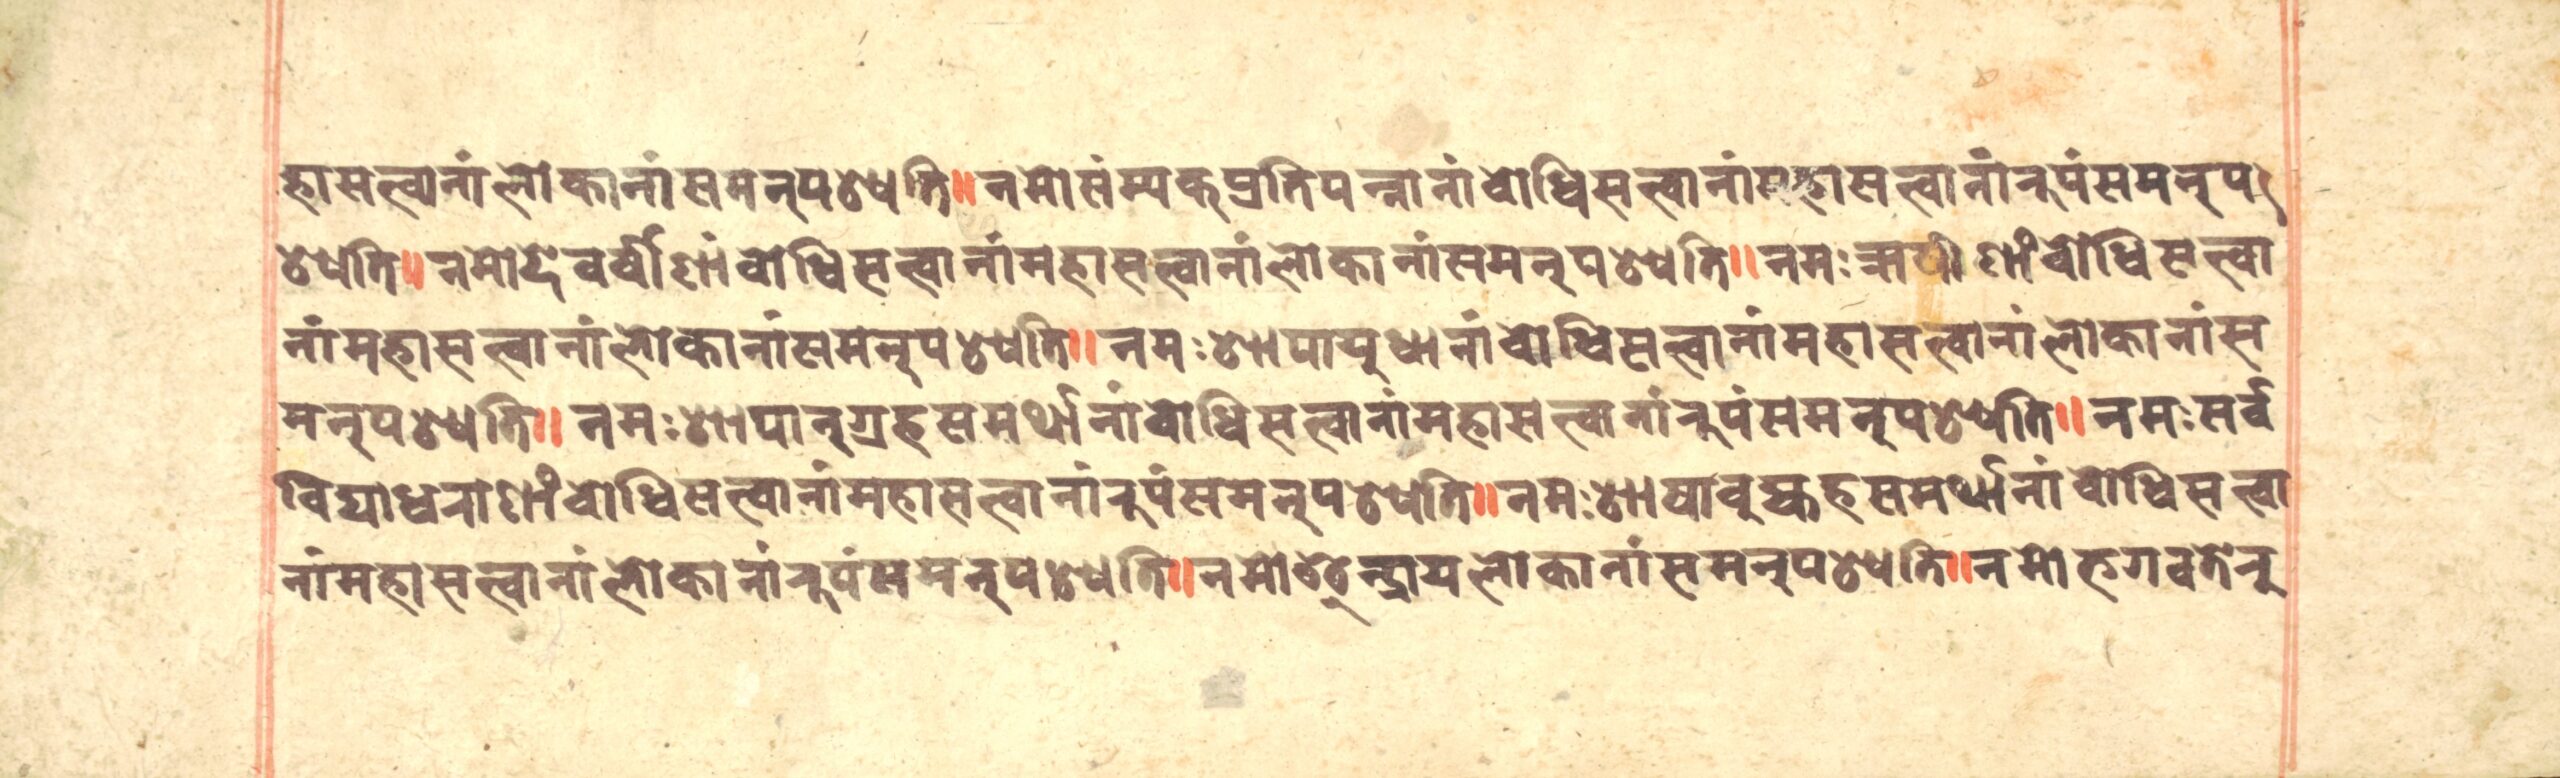 हासत्वानां लोकानां समनुपश्यति॥ नमो संम्यक्प्रतिपन्नानां बोधिसत्वानां महासत्वानां रुपं समनुप
श्यति॥ नमो देवर्षीणां बोधिसत्वानां महासत्वानां लोकानां समनुपश्यति॥ नमः ऋषीणां बोधिसत्वा
नां महासत्वानां लोकानां समनुपश्यति॥ नमः शापायुधानां बोधिसत्वानां महासत्वानां लोकानां स
मनुपश्यति॥ नमः शापानुग्रहसमर्थानां बोधिसत्वानां महासत्वानां रुपं समनुपश्यति॥ नमः सर्व
विद्याधराणां बोधिसत्वानां महासत्वानां रुपं समनुपश्यति॥ नमः समर्थानां बोधिसत्वा
नां महासत्वानां लोकानां रुपं समनुपश्यति॥ नमो लोकानां समनुपश्यति॥ नमो भगवते रु